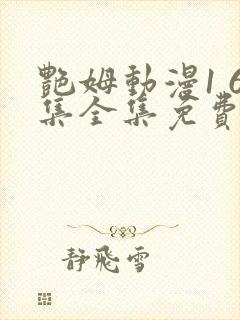 艷姆動漫1 6
集全集免費
靜飛雪